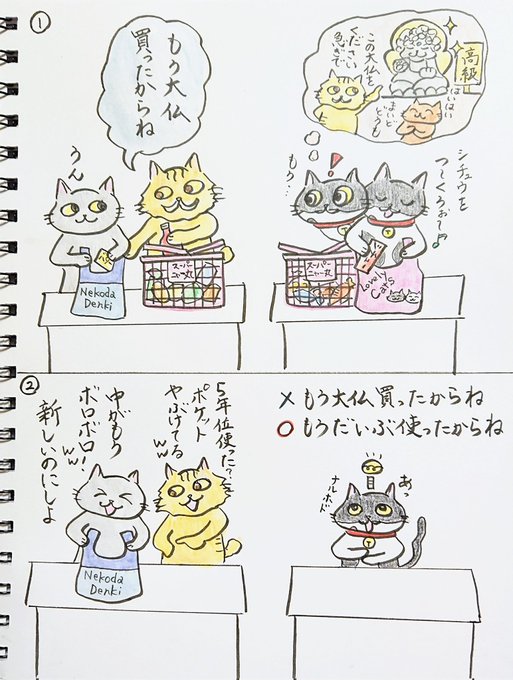 ①
もう大仏
買ったからね
うん
Nekoda
Denki
スーパー
ニャー丸
この大仏を
ください
急ぎで
高級
はいはい
まいど
どうも
シチュウを
つくろおて♪
もう…
!
スーパー
ニャー丸
Lovely
Cats
②
5年位使った?
ポケット
やぶけてるww
中がもう
ボロボロ!ww
新しいのにしよ
Nekoda
Denki
×もう大仏買ったからね
○もうだいぶ使ったからね
あっ
ナルホド